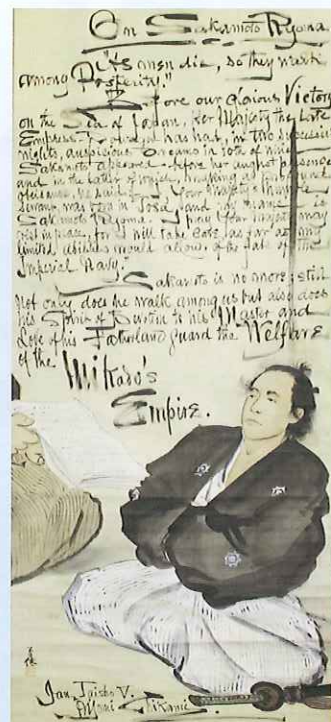 On Sakamoto Ryoma.
"As men die, so they walk
among Posterity."
Before our glorious Victory
on the Sea of Japan, Her Majesty the Late
Empress Dowager has had, in two successive
nights, auspicious Dreams in both of which
Sakamoto appeared before her august presence
and in the latter of which, making a profound
obeisance, he said, "Your Majesty's humble
servant was born in Tosa and my name is
Sakamoto Ryoma. I pray Your Majesty may
rest in peace, for I will take care as far as my
limited abilities would allow, of the fate of the
Imperial Navy."
Sakamoto is no more; still
not only does he walk among us but also does
his Spirit of Devotion to his Master and
Love of his Fatherland guard the Welfare
of the Mikado's
Empire.
Jan. Taisho V.